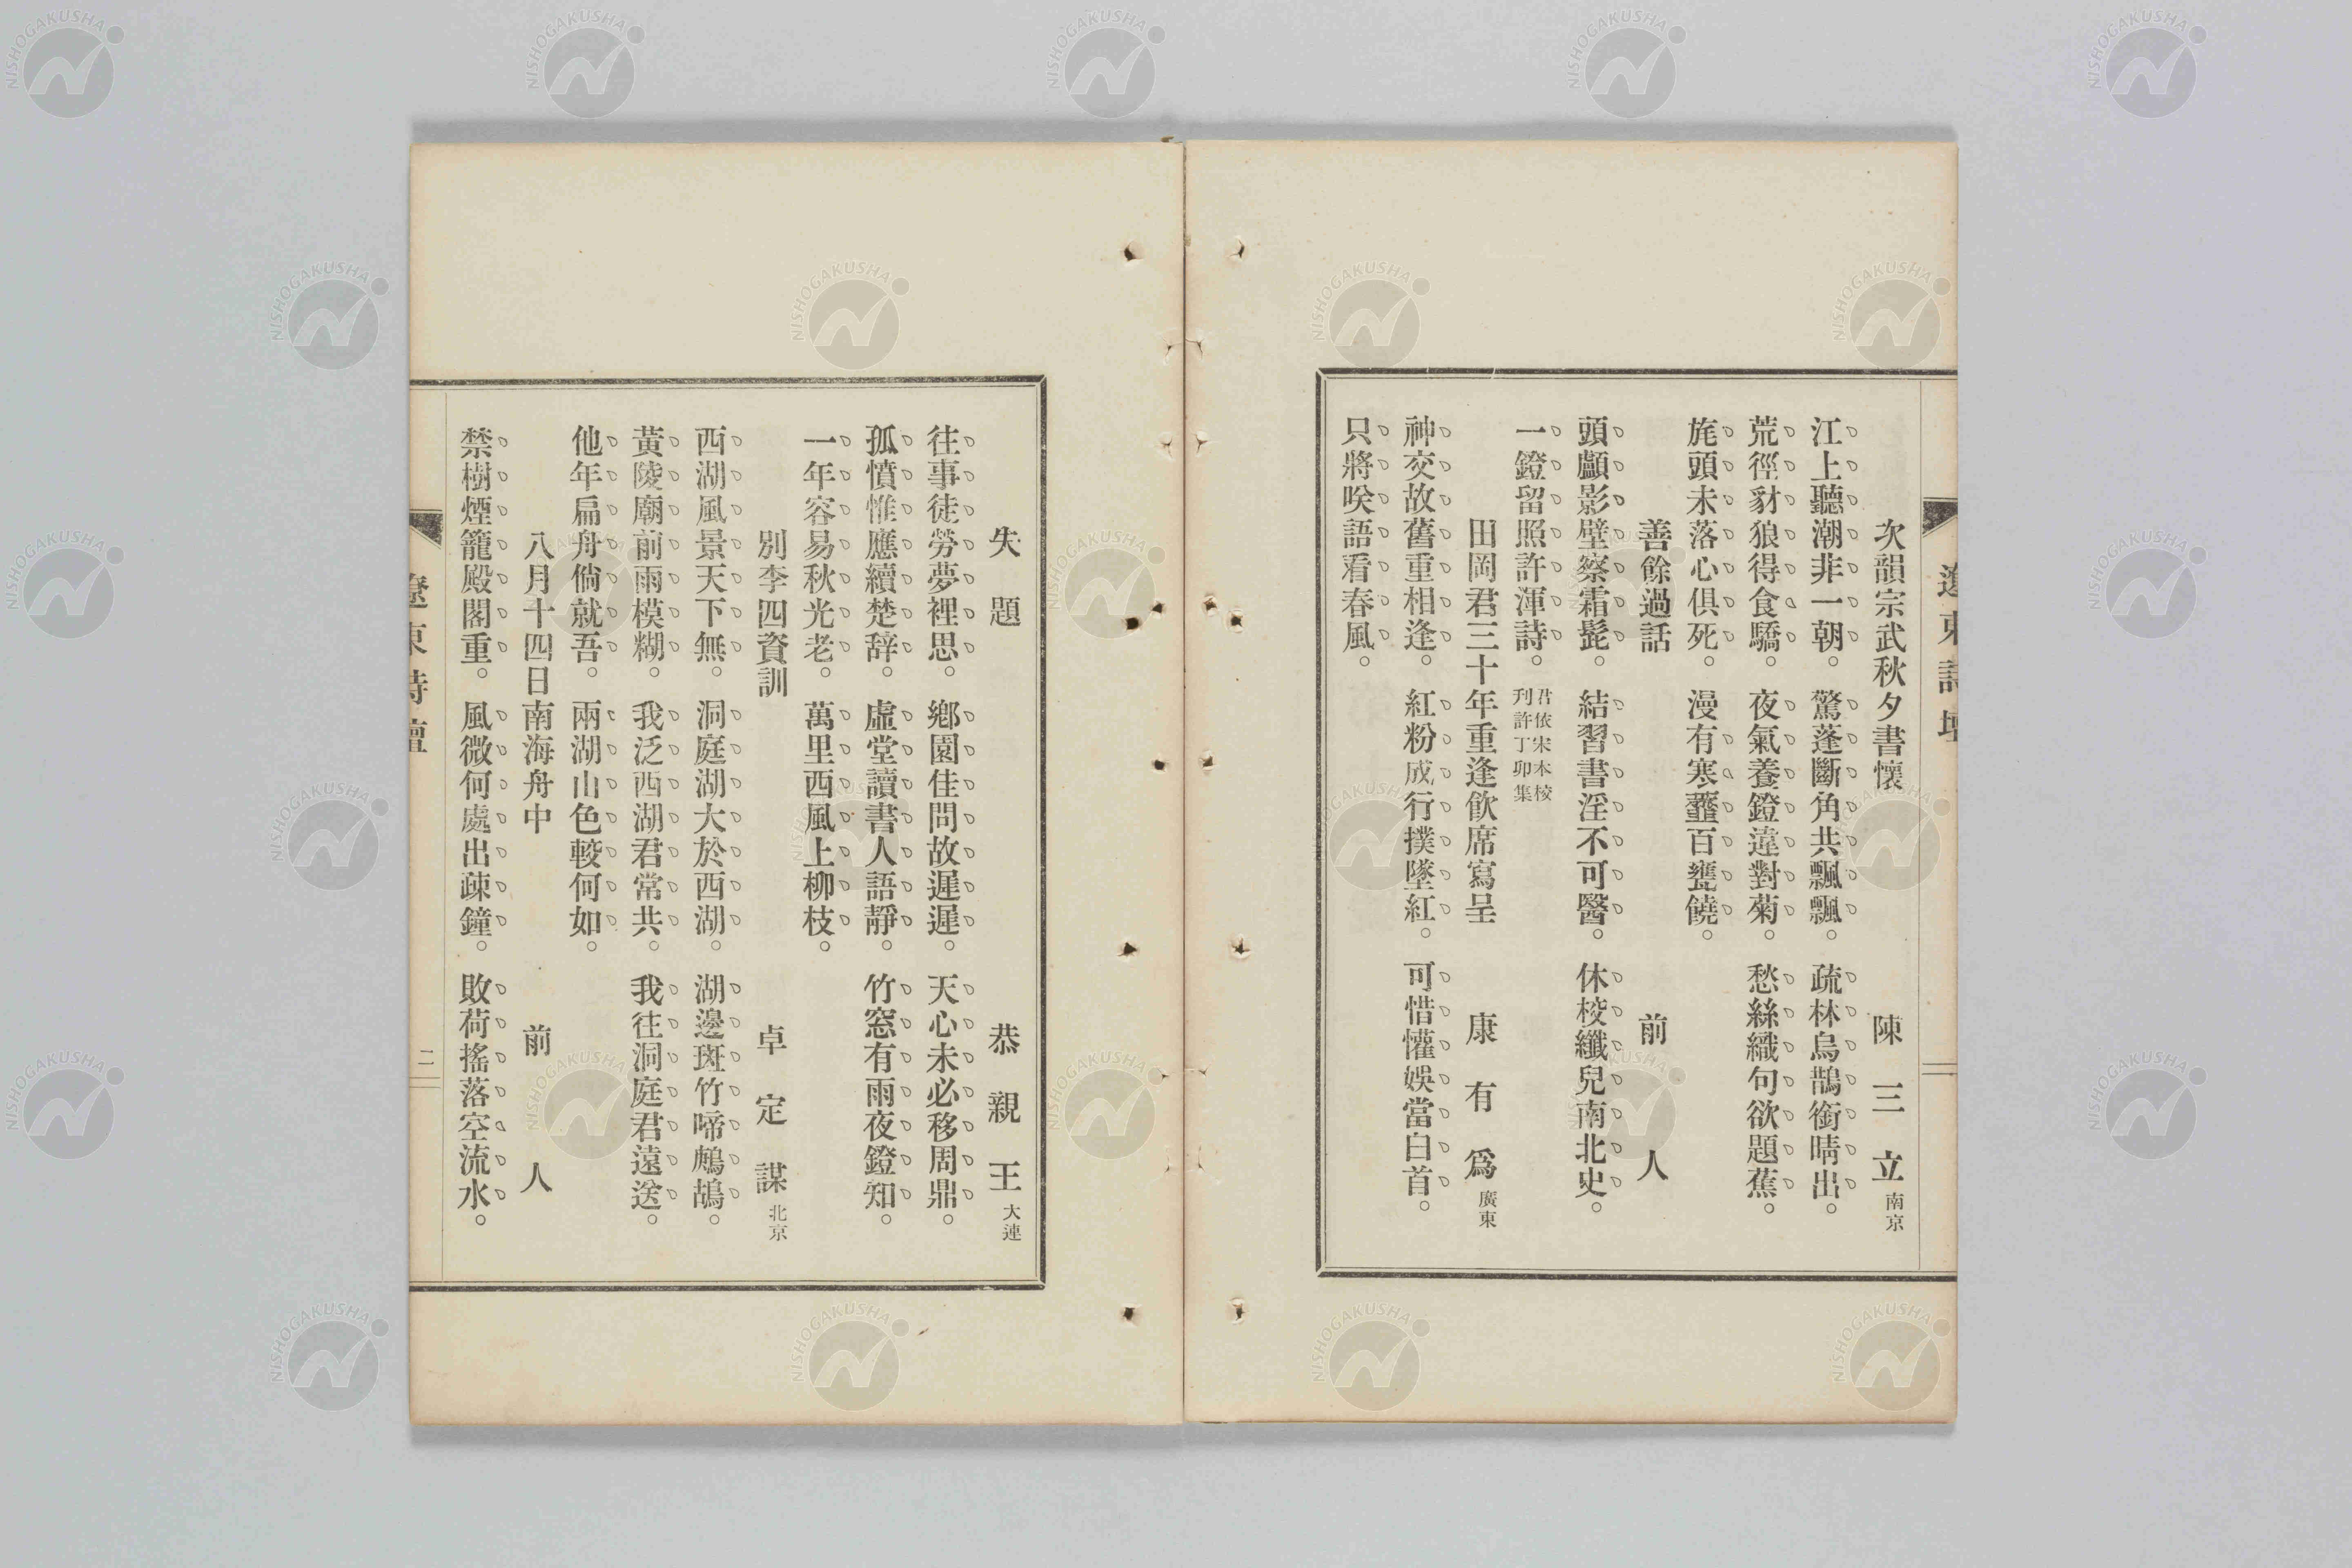 遼東詩壇
次韻宗武秋夕書懷 陳三立 南京
江上聽潮非一朝。驚蓬斷角共飄飄。疏林烏鵲銜晴出。
荒徑豺狼得食驕。夜氣養鐙違對菊。愁絲織句欲題蕉。
旄頭未落心俱死。漫有寒虀百甕饒。
善餘過話 前人
頭顱影壁察霜髭。結習書淫不可醫。休校纖兒南北史。
一鐙留照許渾詩。君依宋本校刊許丁卯集
田岡君三十年重逢飲席寫呈 康有爲 廣東
神交故舊重相逢。紅粉成行撲墜紅。可惜懽娛當白首。
只將咲語看春風。
失題 恭親王 大連
往事徒勞夢裡思。鄉園佳問故遲遲。天心未必移周鼎。
孤憤惟應續楚辞。虛堂讀書人語靜。竹窓有雨夜鐙知。
一年容易秋光老。萬里西風上柳枝。
別李四資訓 卓定謀 北京
西湖風景天下無。洞庭湖大於西湖。湖邊斑竹啼鷓鴣。
黃陵廟前雨模糊。我泛西湖君常共。我往洞庭君遠送。
他年扁舟倘就吾。兩湖山色較何如。
八月十四日南海舟中 前人
禁樹煙籠殿閣重。風微何處出疎鐘。敗荷搖落空流水。
遼東詩壇 二
NISHOGAKUSHA